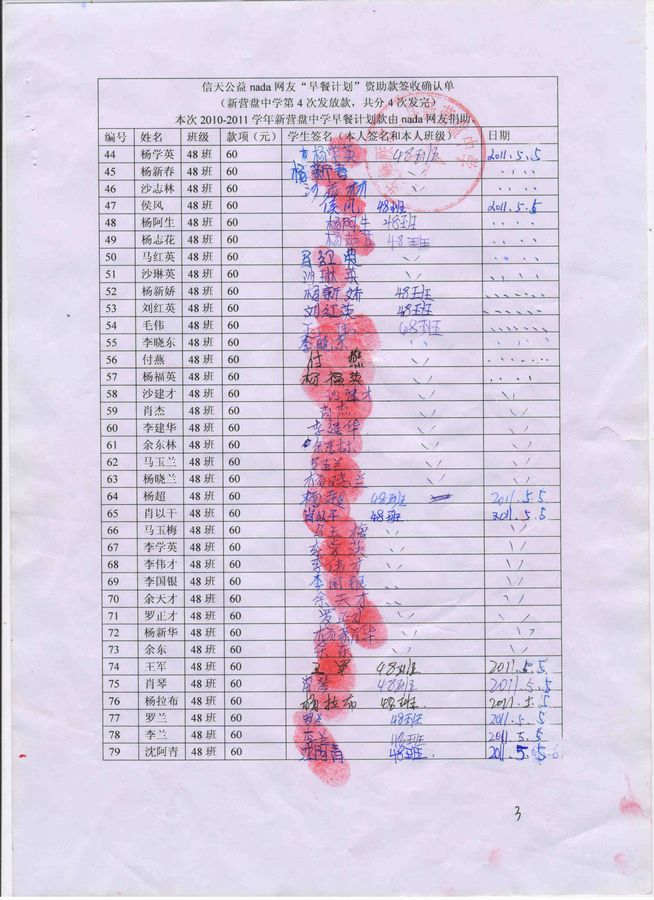 信天公益 nada 网友“早餐计划”资助款签收确认单
（新营盘中学第 4 次发放款，共分 4 次发完）
本次 2010-2011 学年新营盘中学早餐计划款由 nada 网友捐助。
编号 姓名 班级 款项（元） 学生签名（本人签名和本人班级） 日期
44 杨学英 48 班 60 杨学英 48班 2011.5.5
45 杨新春 48 班 60 杨新春
46 沙志林 48 班 60
47 侯风 48 班 60 侯风 48班 2011.5.5
48 杨阿生 48 班 60 杨阿生 48班
49 杨志花 48 班 60 杨志花 48班
50 马红英 48 班 60 马红英
51 沙琳英 48 班 60 沙琳英
52 杨新娇 48 班 60 杨新娇 48班
53 刘红英 48 班 60 刘红英 48班
54 毛伟 48 班 60 48班
55 李晓东 48 班 60 李晓东
56 付燕 48 班 60 付燕
57 杨福英 48 班 60 杨福英
58 沙建才 48 班 60 沙建才
59 肖杰 48 班 60 肖杰
60 李建华 48 班 60 李建华
61 余东林 48 班 60 余东林
62 马玉兰 48 班 60 马玉兰
63 杨晓兰 48 班 60 杨晓兰
64 杨超 48 班 60 杨超 48班 2011.5.5
65 肖以干 48 班 60 肖以干 48班 2011.5.5
66 马玉梅 48 班 60 马玉梅
67 李学英 48 班 60 李学英
68 李伟才 48 班 60 李伟才
69 李国银 48 班 60 李国银
70 余天才 48 班 60 余天才
71 罗正才 48 班 60 罗正才
72 杨新华 48 班 60 杨新华
73 余东 48 班 60 余东
74 王军 48 班 60 王军 48班 2011.5.5
75 肖琴 48 班 60 肖琴 48班 2011.5.5
76 杨拉布 48 班 60 杨拉布 48班 2011.5.5
77 罗兰 48 班 60 罗兰 48班 2011.5.5
78 李兰 48 班 60 李兰 48班 2011.5.5
79 沈阿青 48 班 60 沈阿青 48班 2011.5.5
3